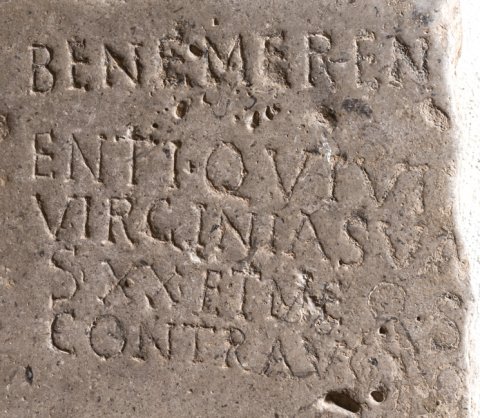 BENEMER·EN
ENTI·QVIVI
VIRGINIASV
SXXETME
CONTRA